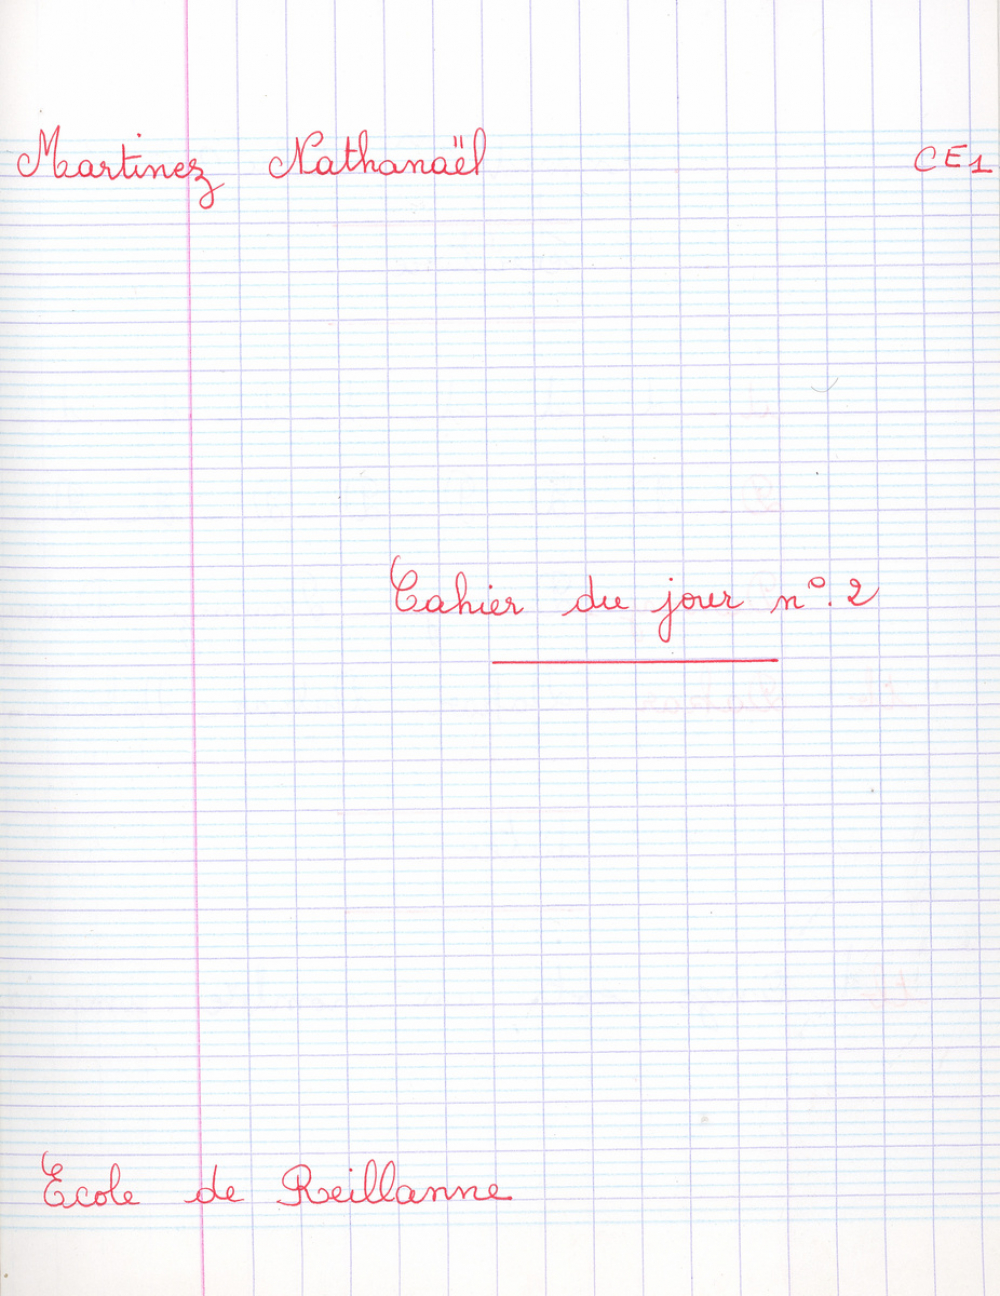 Martinez Nathanaël CE1
Cahier du jour n°. 2
Ecole de Reillanne